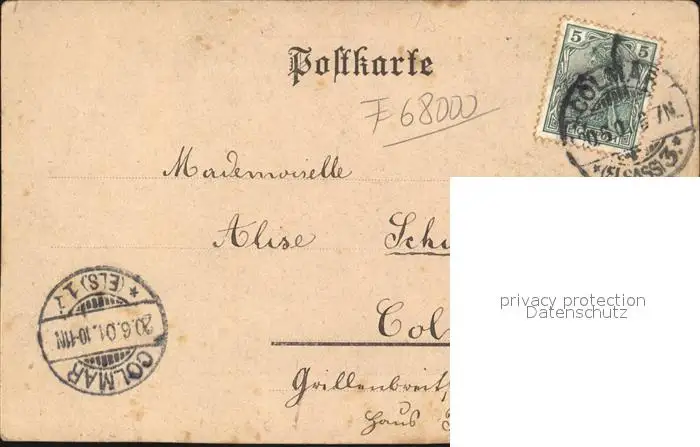 5 5
Postkarte
COLMAR
7N.
*(ELSASS)3.*
F 68000
Mademoiselle
Alise Sch
Col
Grillenbreit
Haus
privacy protection
Datenschutz
COLMAR
20.6.01.10-11N
*(ELS)1.